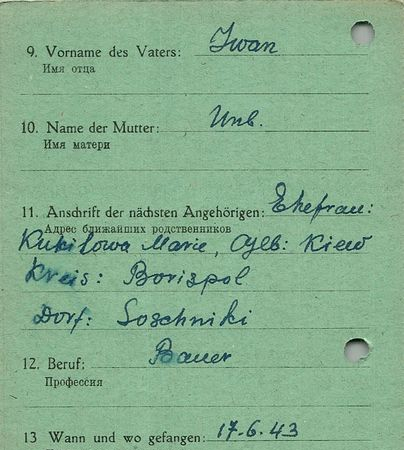 9. Vorname des Vaters: Iwan
Имя отца
10. Name der Mutter: Unb.
Имя матери
11. Anschrift der nächsten Angehörigen: Ehefrau:
Адрес ближайших родственников
Kukilowa Marie, Gb: Kiew
Kreis: Borispol
Dorf: Soschniki
12. Beruf: Bauer
Профессия
13 Wann und wo gefangen: 17.6.43